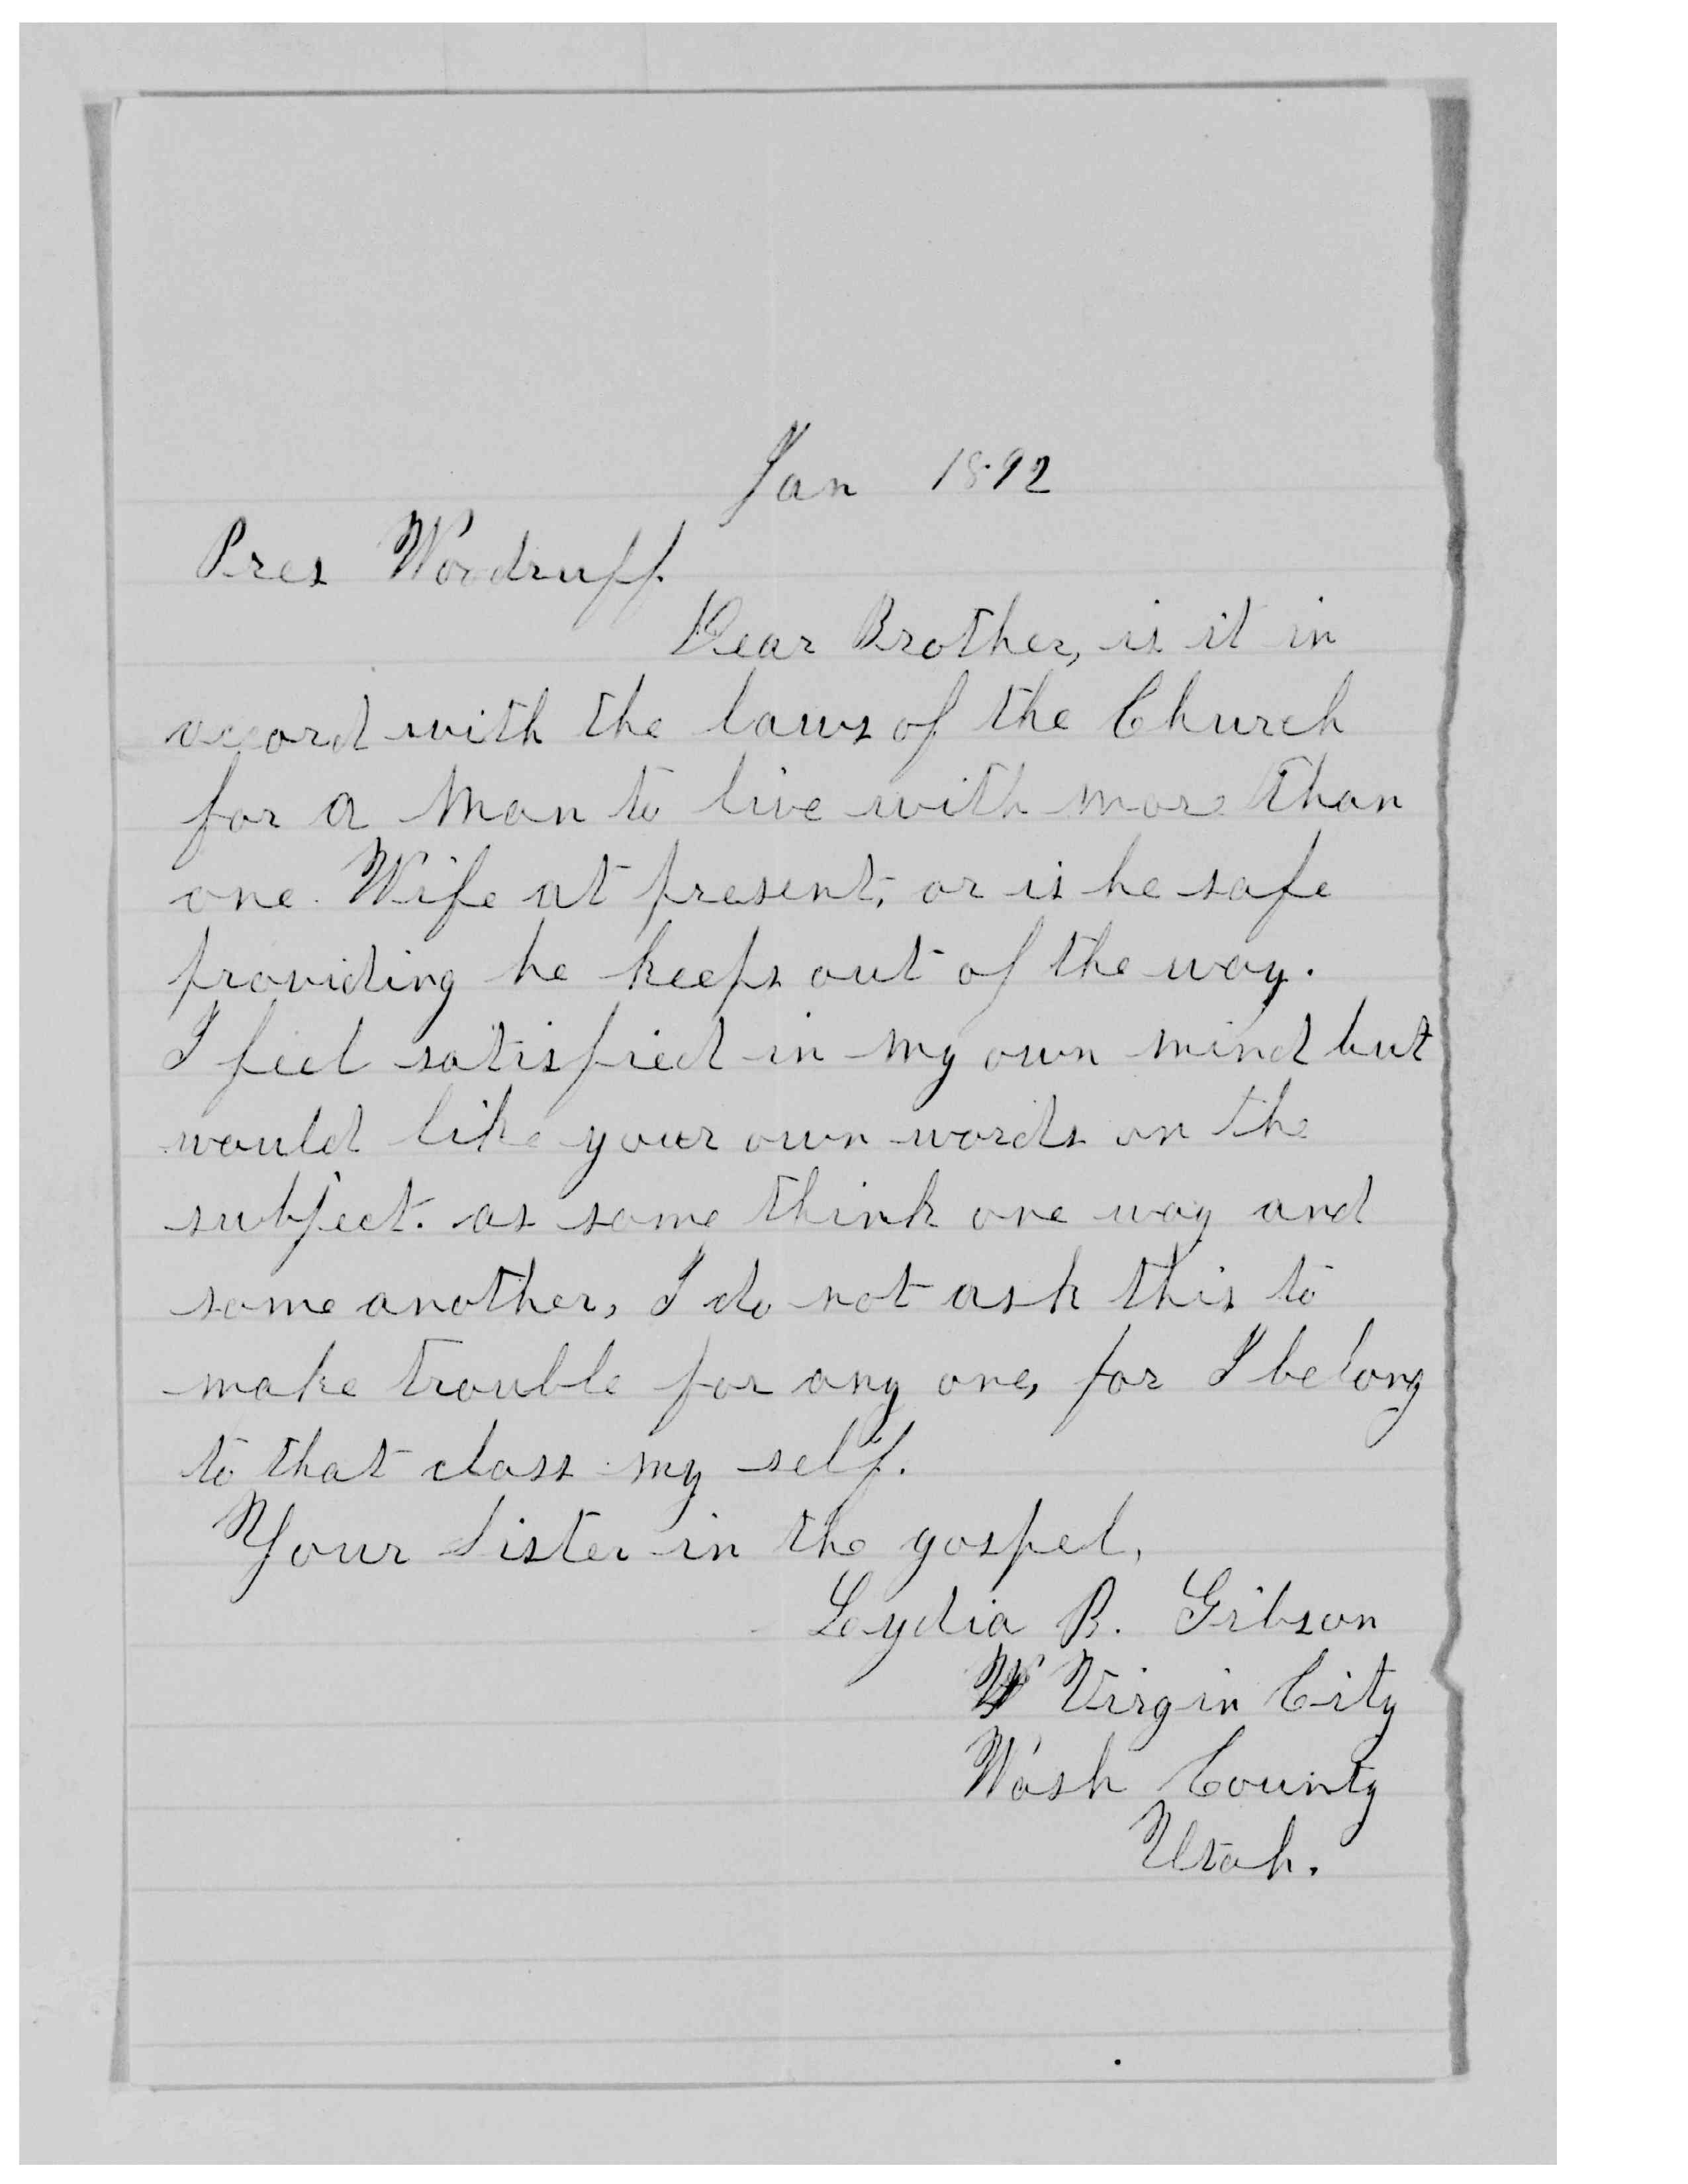 Jan 1892
Pres Woodruff.
Dear Brother, is it in
accord with the laws of the Church
for a Man to live with more than
one Wife at present, or is he safe
providing he keeps out of the way.
I feel satisfied in my own mind but
would like your own words on the
subject. as some think one way and
some another, I do not ask this to
make trouble for any one, for I belong
to that class my self.
Your Sister in the gospel,
Lydia B. Gibson
Virgin City
Wash County
Utah.